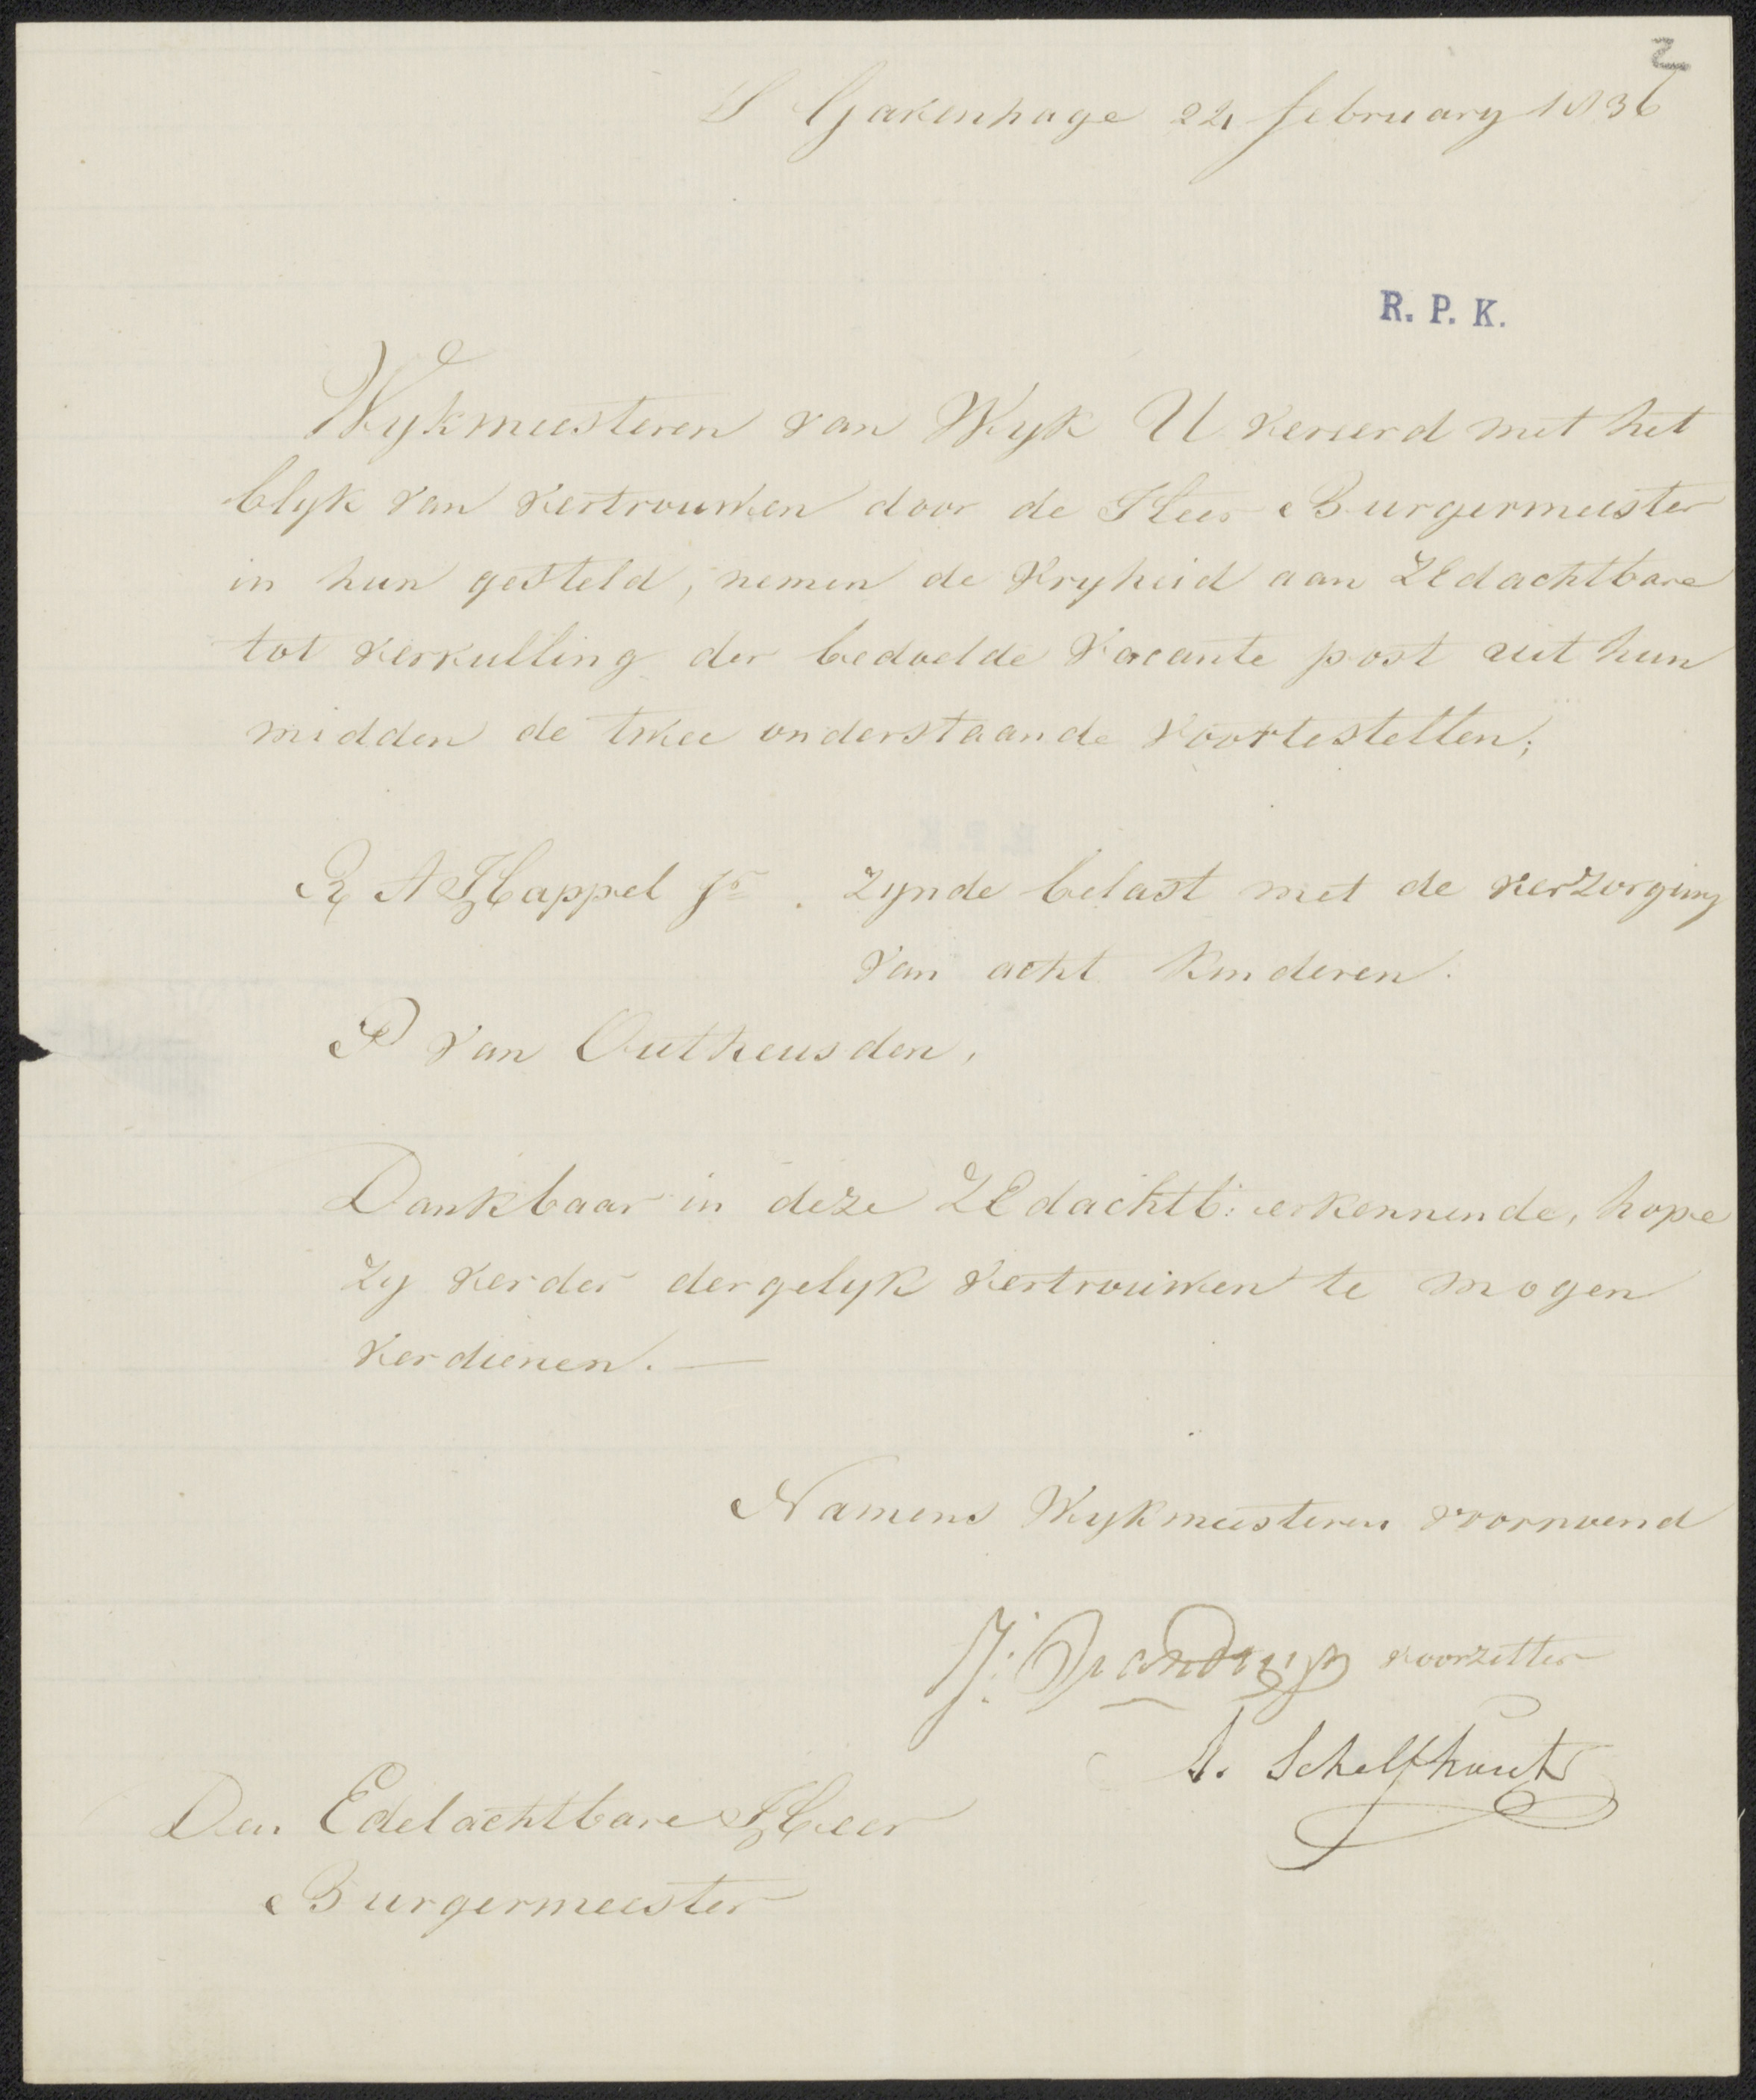 2
S Gravenhage 22 february 1836
R. P. K.
Wykmeesteren van Wyk U vereerd met het
blyk van vertrouwen door de Heer Burgermeester
in hun gesteld, nemen de vryheid aan ZEdachtbare
tot vervulling der bedoelde vacante post uit hun
midden de twee onderstaande voortestellen;
R A Happel Jr. zynde belast met de verzorging
van acht kinderen.
P van Outheusden,
Dankbaar in deze ZEdachtb: erkennende, hope
zy verder dergelyk vertrouwen te mogen
verdienen. —
Namens Wykmeesteren voornoemd
voorzetter
A. Schelfhout
Den Edelachtbare Heer
Burgermeester